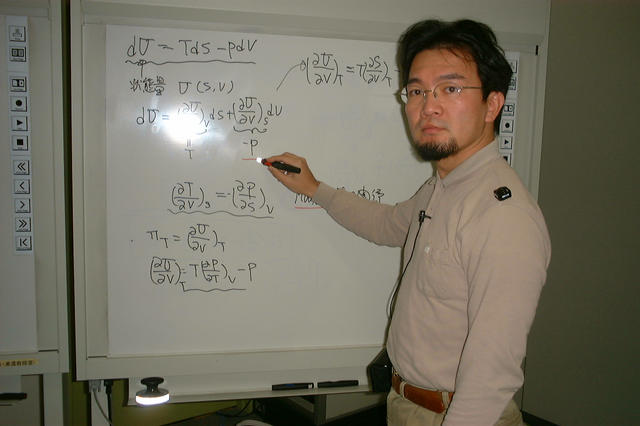 dU = TdS - pdV
状態量 U (S, V)
dU = (∂U/∂V)_V dS + (∂U/∂V)_S dV
= T
-P
(∂U/∂V)_T = T(∂S/∂V)_T
(∂T/∂V)_S = -(∂P/∂S)_V
π_T = (∂U/∂V)_T
(∂U/∂V)_T = T(∂P/∂T)_V - P